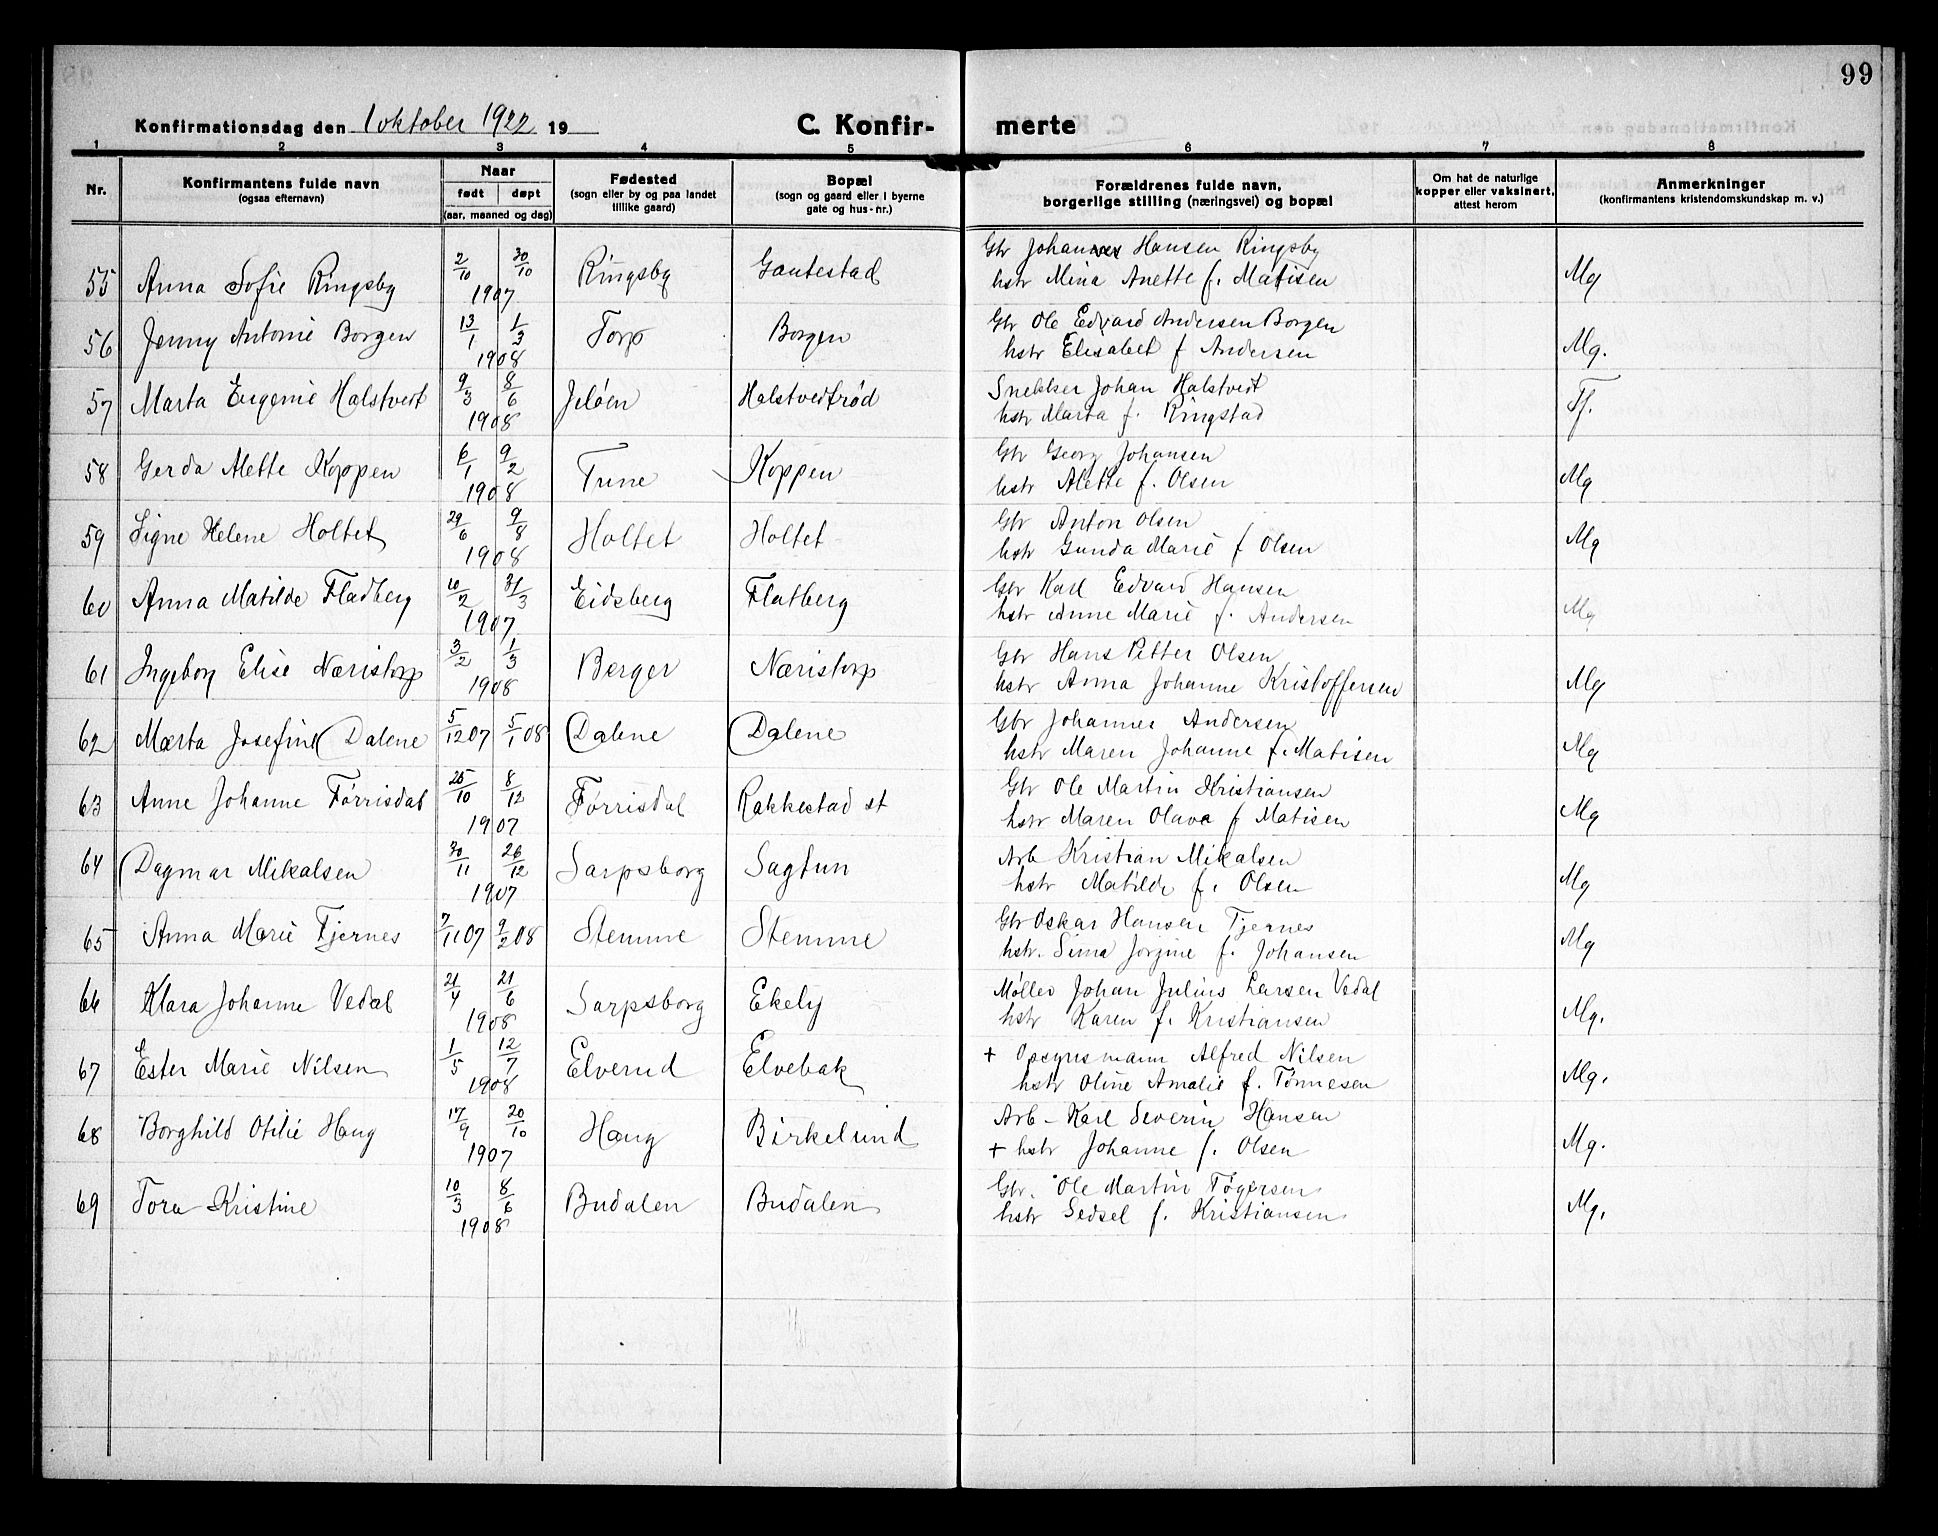 99
Konfirmationsdag den 1 oktober 1922 19
C. Konfir- merte
1 2 3 4 5 6 7 8
Nr.
Konfirmantens fulde navn
(ogsaa efternavn)
Naar
født døpt
(aar, maaned og dag)
Fødested
(sogn eller by og paa landet
tillike gaard)
Bopæl
(sogn og gaard eller i byerne
gate og hus-nr.)
Forældrenes fulde navn,
borgerlige stilling (næringsvei) og bopæl
Om hat de naturlige
kopper eller vaksinert,
attest herom
Anmerkninger
(konfirmantens kristendomskundskap m. v.)
55 Anna Sofie Ringsby 2/10 30/10 1907 Ringsby Gautestad Gbr Johannes Hansen Ringsby
hstr Mina Anette f. Matisen Mg
56 Jenny Antonie Borgen 13/1 1/3 1908 Torp Borgen Gbr Ole Edvard Andersen Borgen
hstr Elisabet f Andersen Mg.
57 Marta Eugenie Halstvedt 9/3 8/6 1908 Jeløen Halstvedtrød Snekker Johan Halstvedt
hstr Marta f. Ringstad Tf.
58 Gerda Alette Koppen 6/1 9/2 1908 Tune Koppen Gbr Georg Johansen
hstr Alette f. Olsen Mg
59 Signe Helene Holtet 29/6 9/8 1908 Holtet Holtet Gbr Anton Olsen
hstr Gunda Marie f Olsen Mg
60 Anna Matilde Fladberg 10/2 31/3 1907 Eidsberg Flatberg Gbr Karl Edvard Hansen
hstr Anne Marie f. Andersen Mg
61 Ingeborg Elise Næristorp 3/2 1/3 1908 Berger Næristorp Gbr Hans Petter Olsen
hstr Anna Johanne Kristoffersen Mg
62 Marta Josefine Dalene 5/12 07 5/1 08 Dalene Dalene Gbr Johannes Andersen
hstr Maren Johanne f. Matisen Mg
63 Anne Johanne Førrisdal 25/10 8/12 1907 Førrisdal Rakkestad st Gbr Ole Martin Kristiansen
hstr Maren Olava f Matisen Mg
64 Dagmar Mikalsen 30/11 26/12 1907 Sarpsborg Sagtun Arb Kristian Mikalsen
hstr Matilde f. Olsen Mg
65 Anna Marie Tjernes 7/11 07 9/2 08 Stemme Stemme Gbr Oskar Hansen Tjernes
hstr. Sima Jorgine f. Johansen Mg
66 Klara Johanne Vedal 21/4 21/6 1908 Sarpsborg Ekely Møller Johan Julius Larsen Vedal
hstr Karen f. Kristiansen Mg.
67 Ester Marie Nilsen 1/5 12/7 1908 Elverud Elvebak + Opsynsmann Alfred Nilsen
hstr Oline Amalie f. Tønnesen Mg.
68 Borghild Otilie Haug 17/9 20/10 1907 Haug Birkelund Arb - Karl Severin Hansen
+ hstr Johanne f. Olsen Mg.
69 Tora Kristine 10/3 8/6 1908 Budalen Budalen Gbr. Ole Martin Tøgersen
hstr Sedsel f. Kristiansen Mg.